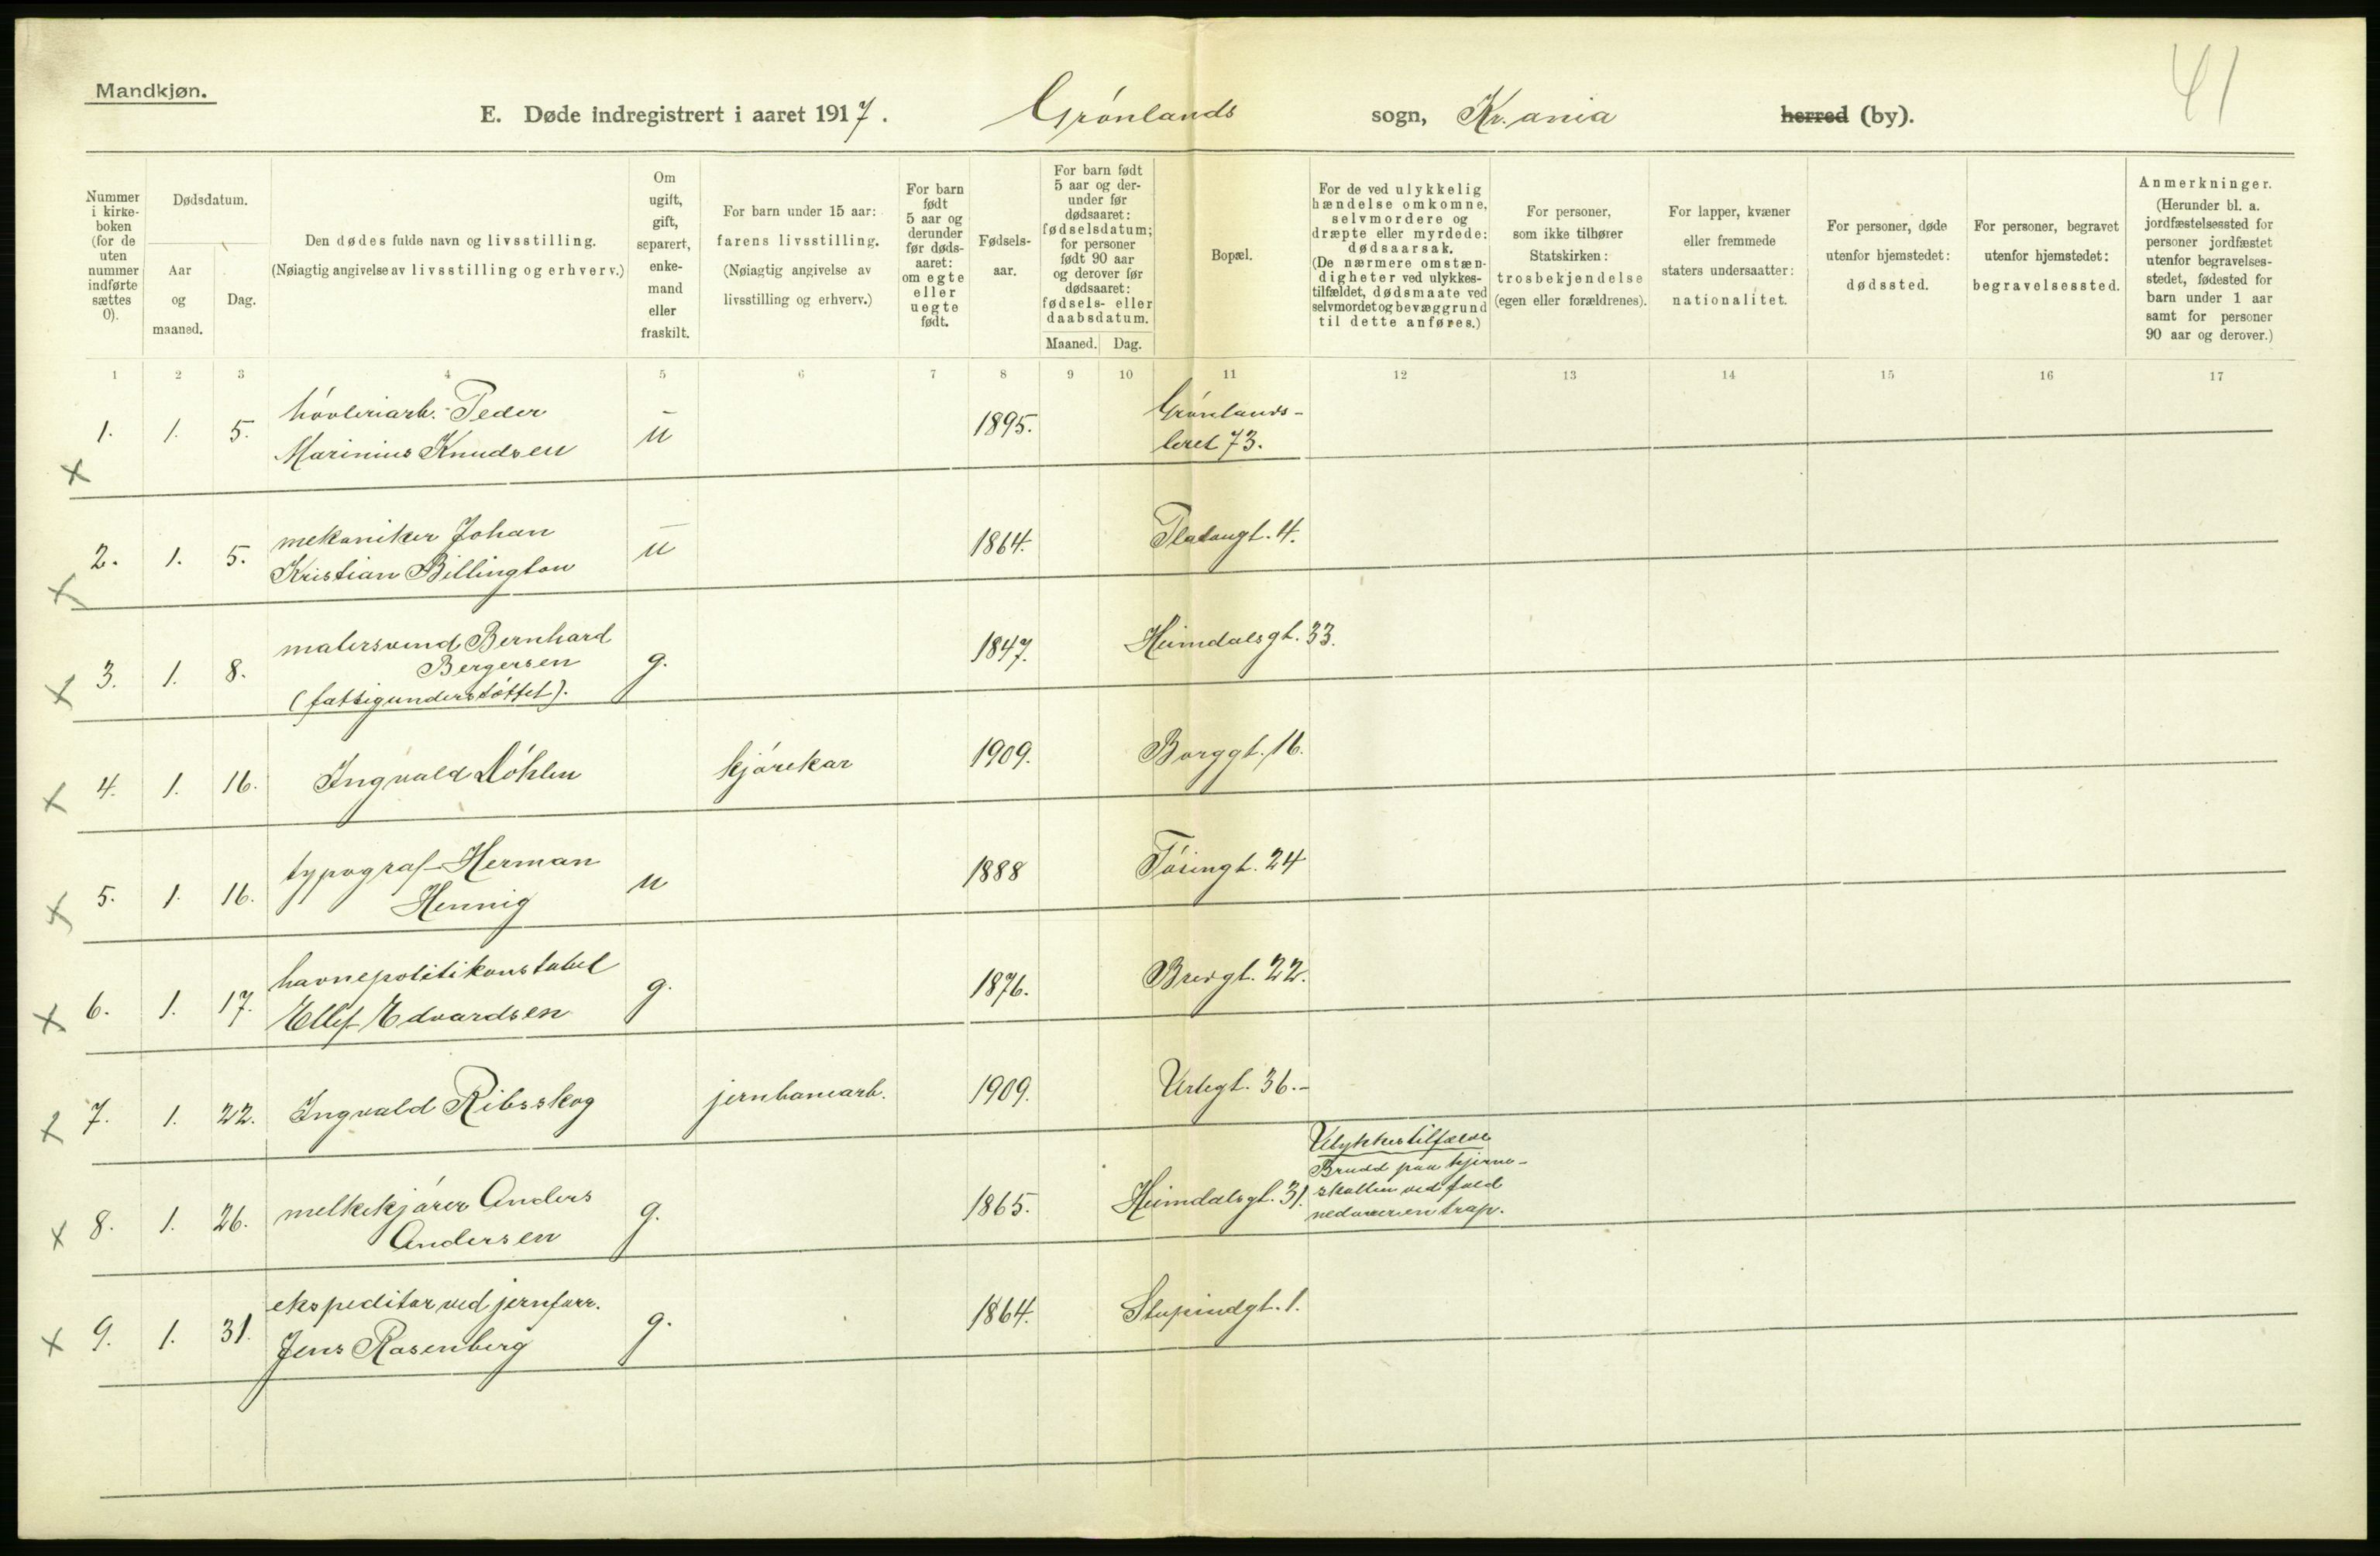 Mandkjøn.
41
E. Døde indregistrert i aaret 1917. Grønlands sogn, Kr.ania herred (by).
Nummer i kirke-boken (for de uten nummer indførte sættes 0).
Dødsdatum.
Aar og maaned.
Dag.
Den dødes fulde navn og livsstilling.
(Nøiagtig angivelse av livsstilling og erhverv.)
Om ugift, gift, separert, enke-mand eller fraskilt.
For barn under 15 aar:
farens livsstilling.
(Nøiagtig angivelse av livsstilling og erhverv.)
For barn født 5 aar og derunder før døds-aaret: om egte eller uegte født.
Fødsels-aar.
For barn født 5 aar og der-under før dødsaaret: fødselsdatum; for personer født 90 aar og derover før dødsaaret: fødsels- eller daabsdatum.
Maaned. Dag.
Bopæl.
For de ved ulykkelig hændelse omkomne, selvmordere og dræpte eller myrdede: dødsaarsak.
(De nærmere omstæn-digheter ved ulykkes-tilfældet, dødsmaate ved selvmordet og bevæggrund til dette anføres.)
For personer, som ikke tilhører Statskirken: trosbekjendelse (egen eller forældrenes).
For lapper, kvæner eller fremmede staters undersaatter: nationalitet.
For personer, døde utenfor hjemstedet: dødssted.
For personer, begravet utenfor hjemstedet: begravelsessted.
Anmerkninger.
(Herunder bl. a. jordfæstelsessted for personer jordfæstet utenfor begravelses-stedet, fødested for barn under 1 aar samt for personer 90 aar og derover.)
1 2 3 4 5 6 7 8 9 10 11 12 13 14 15 16 17
høvleriarb. Peder Grønlands-
1. 1. 5. Marinius Knudsen u 1895. leret 73.
mekaniker Johan
2. 1. 5. Kristian Billington u 1864. Platougt. 4.
malersvend Bernhard
3. 1. 8. Bergersen g. 1847. Heimdalsgt. 33.
(fattigunderstøttet).
4. 1. 16. Ingvald Løhlen kjørekar 1909. Borggt. 16.
typograf Herman
5. 1. 16. Hennig u 1888 Tøiengt. 24
havnepolitikonstabel
6. 1. 17. Ellef Edvardsen g. 1876. Breigt. 22.
7. 1. 22. Ingvald Ribsskog jernbanearb. 1909. Urtegt. 36.-
Ulykkestilfælde
Brudd paa hjerne-
8. 1. 26. melkekjører Anders g. 1865. Heimdalsgt. 31. skallen ved fald
Andersen nedover en trap.
ekspeditør ved jernforr.
9. 1. 31. Jens Rosenberg g. 1864. Stupindgt. 1.